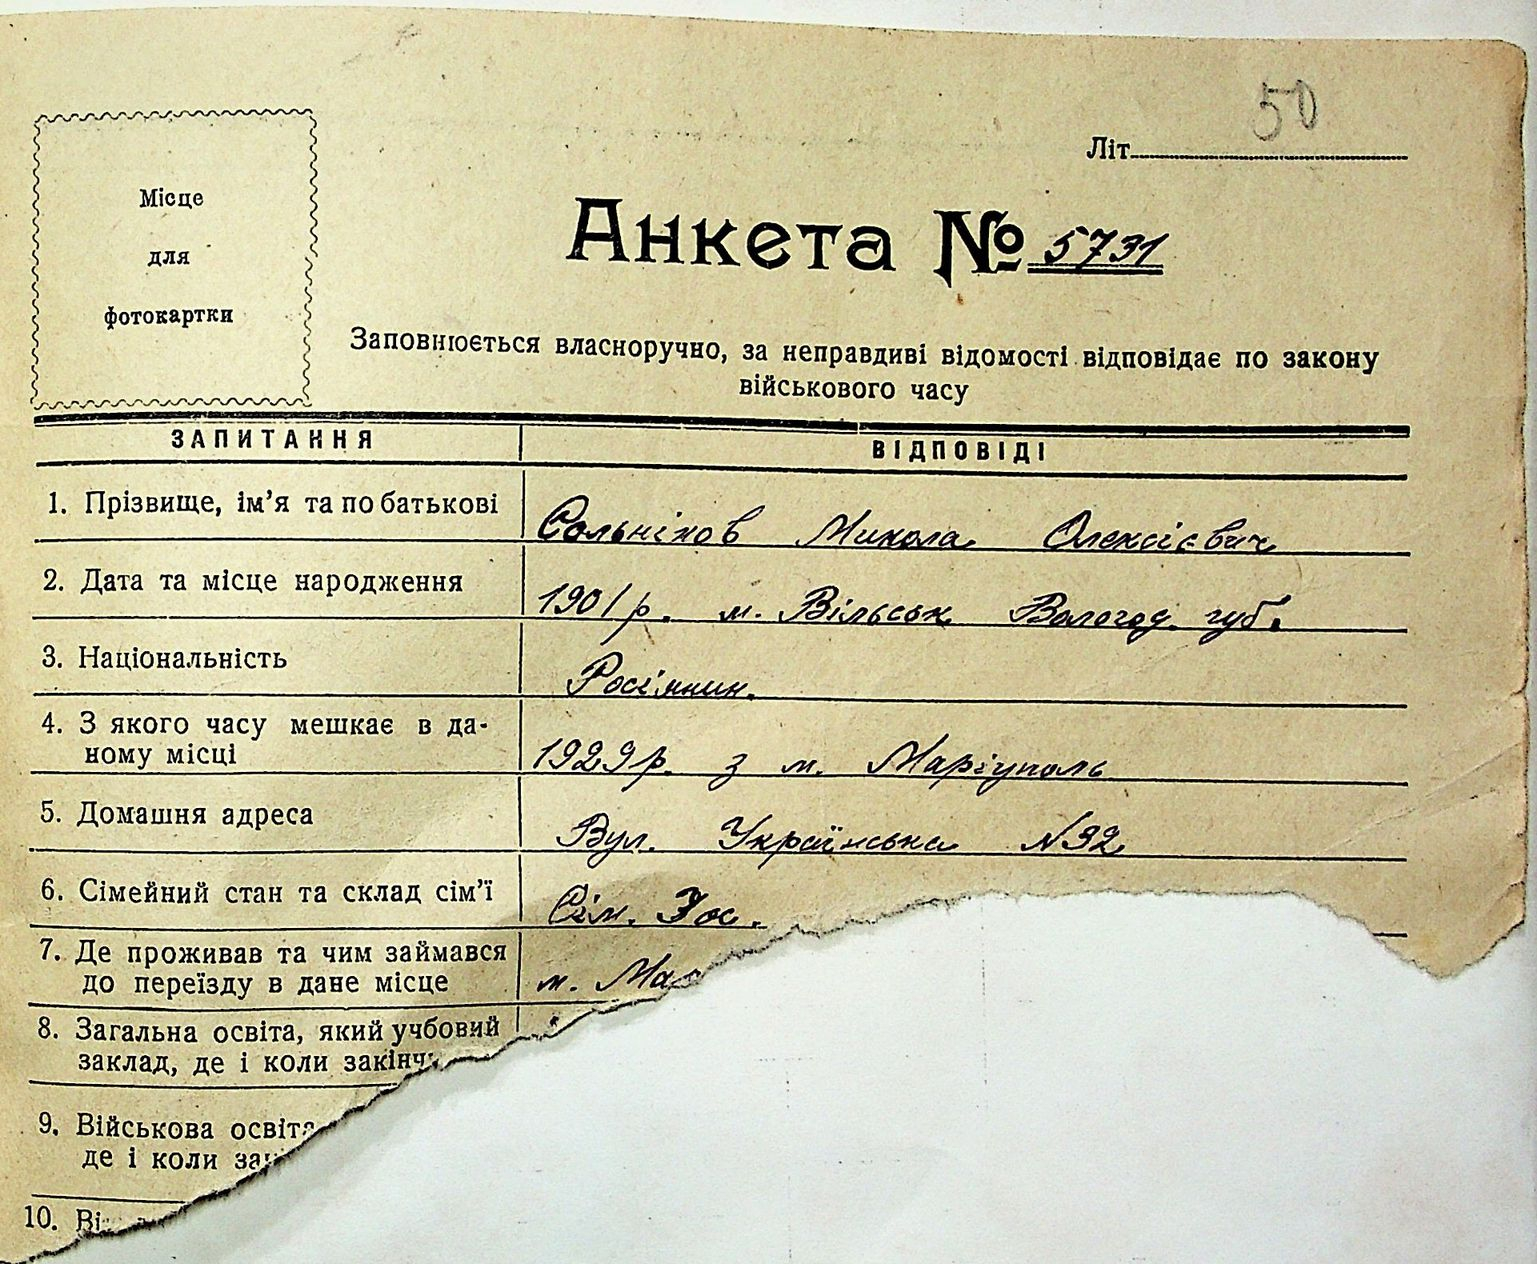 50
Літ
Місце
для
фотокартки
Анкета № 5731
Заповнюється власноручно, за неправдиві відомості відповідає по закону
військового часу
ЗАПИТАННЯ ВІДПОВІДІ
1. Прізвище, ім'я та по батькові Сольніков Микола Олексієвич
2. Дата та місце народження 1901 р. м. Вільськ Вологод. губ.
3. Національність Росіянин.
4. З якого часу мешкає в да-
ному місці 1929 р. з м. Маріуполь
5. Домашня адреса Вул. Українська N 92
6. Сімейний стан та склад сім'ї Сім.
7. Де проживав та чим займався
до переїзду в дане місце м. Ма
8. Загальна освіта, який учбовий
заклад, де і коли закінч
9. Військова освіта
де і коли за
10. Ві